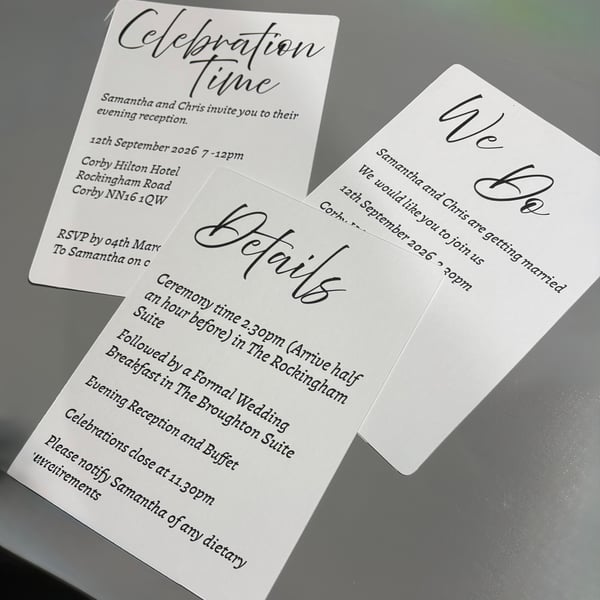 Celebration
Time
Samantha and Chris invite you to their
evening reception.
12th September 2026 7 -12pm
Corby Hilton Hotel
Rockingham Road
Corby NN16 1QW
RSVP by 04th
To Samantha on
We
Do
Samantha and Chris are getting married
We would like you to join us
12th September 2026
Details
Ceremony time 2.30pm (Arrive half
an hour before) in The Rockingham
Suite
Followed by a Formal Wedding
Breakfast in The Broughton Suite
Evening Reception and Buffet
Celebrations close at 11.30pm
Please notify Samantha of any dietary
requirements